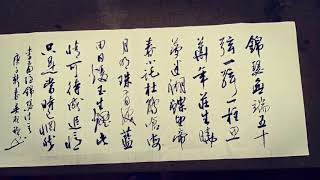 錦瑟無端五十
弦一弦一柱思
華年莊生曉
夢迷蝴蝶望帝
春心托杜鵑滄海
月明珠有淚藍
田日暖玉生煙此
情可待成追憶
只是當時已惘然
李商隱錦瑟詩
庚子秋